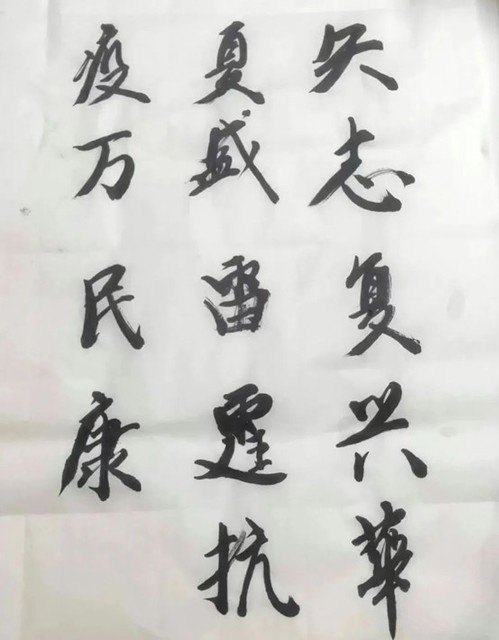 矢志复兴華
夏盛雷霆抗
疫万民康